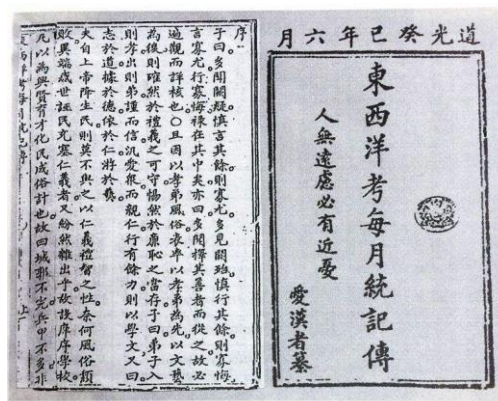 道光癸巳年六月
東西洋考每月統記傳
人無遠慮必有近憂
愛漢者纂
序
子曰多聞闕疑慎言其餘則寡尤多見闕殆慎行其餘則寡悔
言寡尤行寡悔祿在其中矣亦曰多聞擇其善者而從之故必
遍觀而詳核也○且因以孝弟風俗表率以孝弟為先以文藝
為後則確然於禮義之可守惕然於廉恥之當存子曰弟子入
則孝出則弟謹而信汎愛衆而親仁行有餘力則以學文又曰
志於道據於德依於仁游於藝
夫自上帝降生民則莫不與之以仁義禮智之性奈何風俗頹
敗異端惑世誣民充塞仁義者又紛然雜出乎故謹庠序學校
凡以為興賢育才化民成俗計也故曰城郭不完兵甲不多非
東西洋考每月統記傳